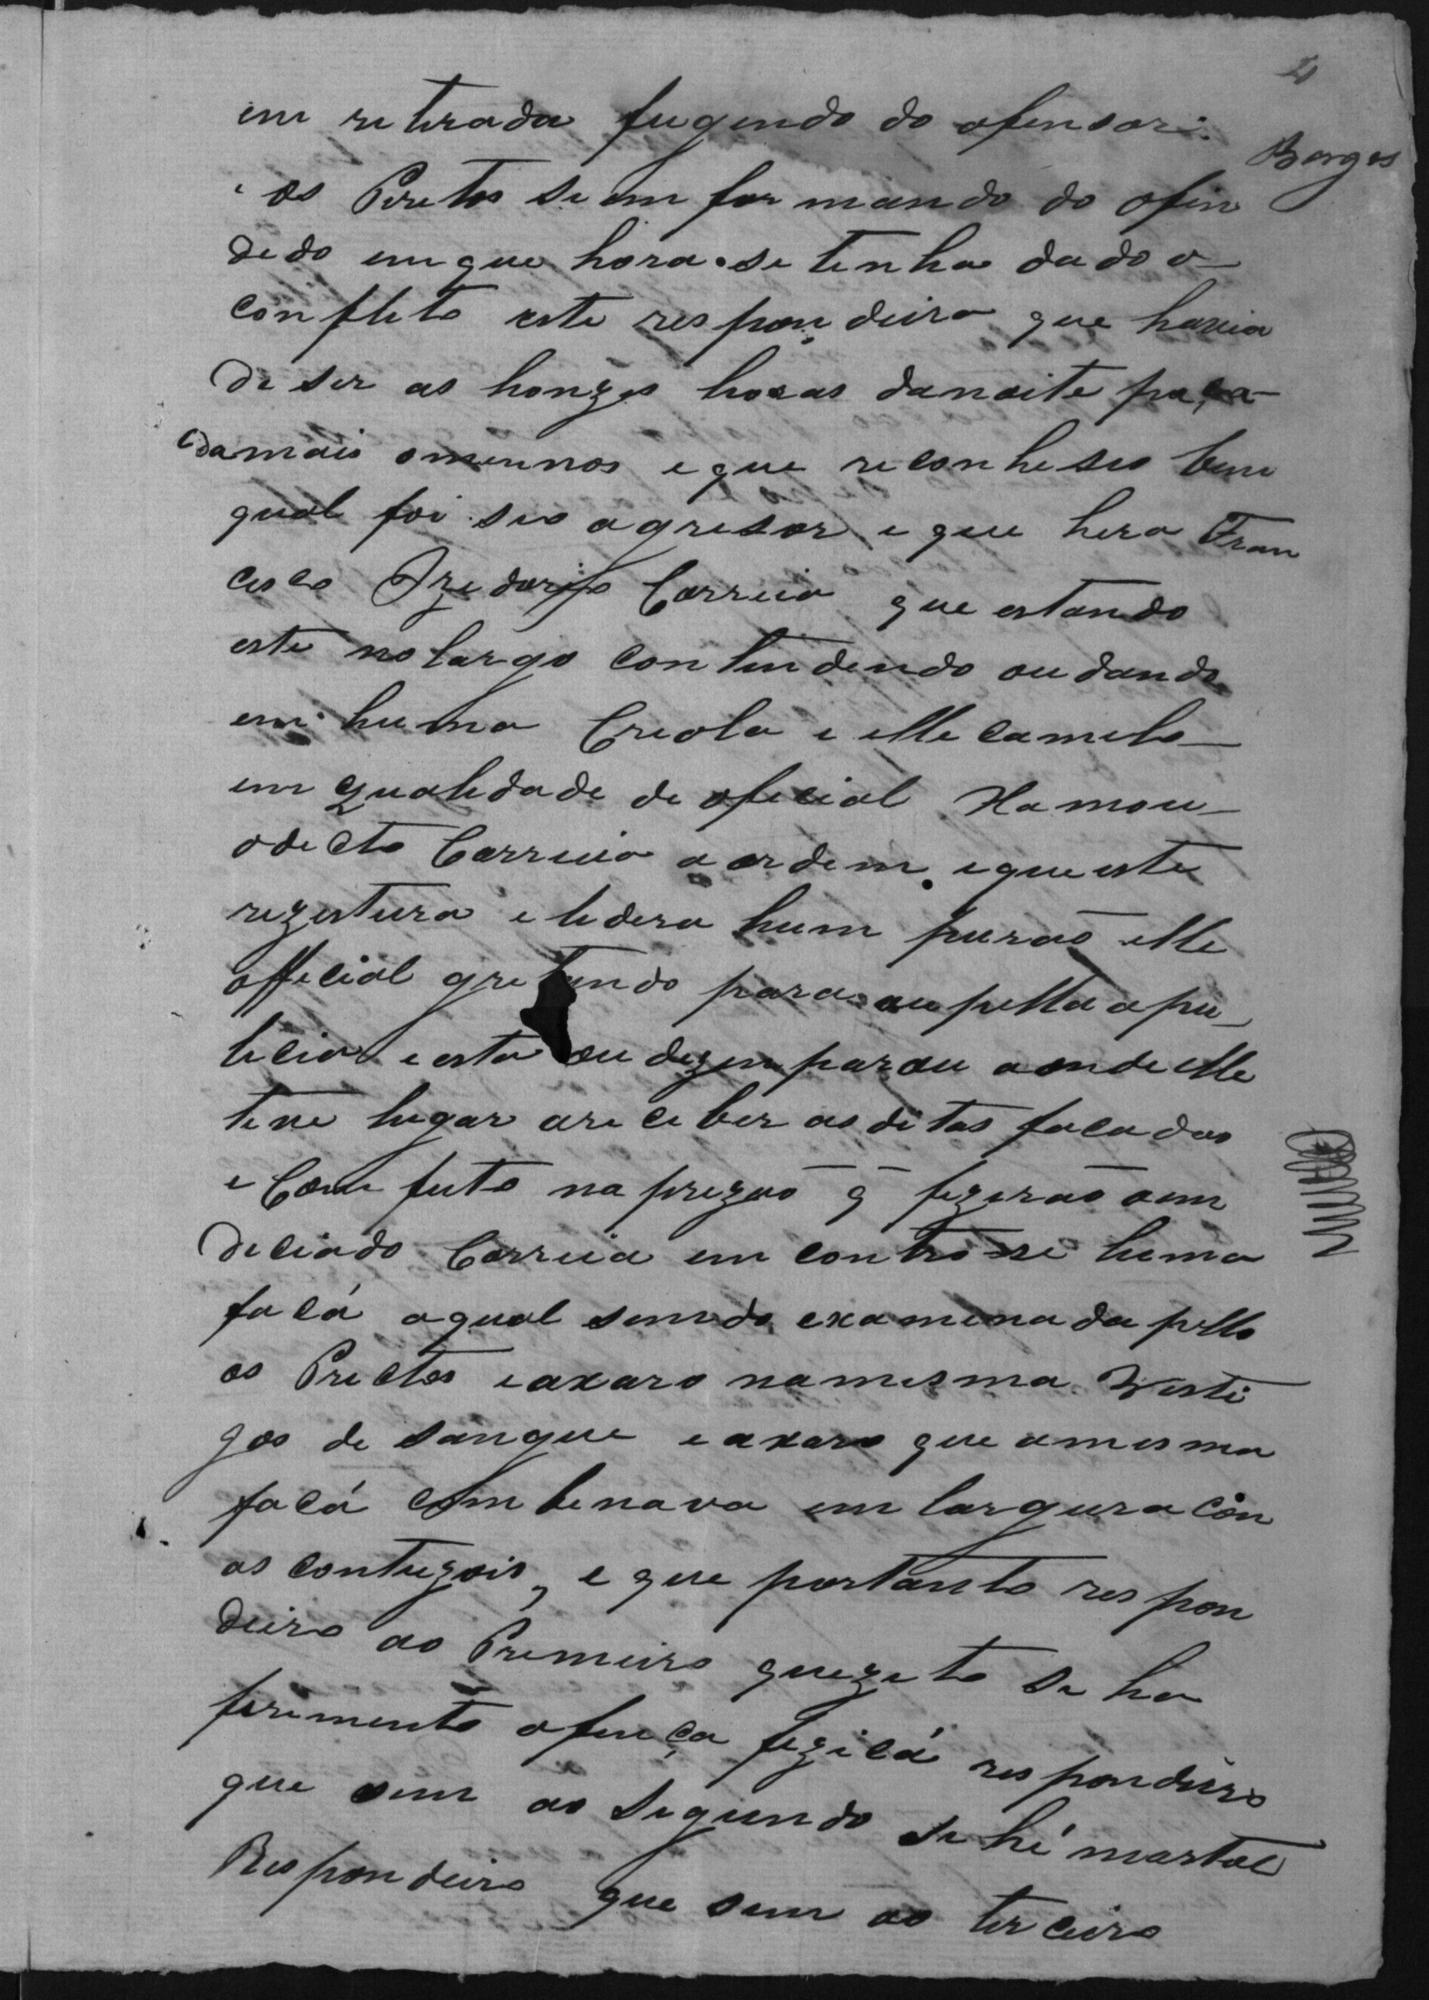 4
Borges
em retirada fugindo do ofensor.
e os Peretos se em for mando do ofin
dedo em que hora se tenha dado o
conflito este respon deiro que havia
de ser as honze horas danoite paça
damais omennos e que reconheseo bem
qual foi seo agresor e que hera Fran
cisco Izedorio Correia que estando
este no largo contendendo ou dando
em huma Creola e elle camelo
em qualidade de oficial xamou
odecto Correia a ordem e que este
rezestira e lidera hum purão elle
official gretando para au pella apu
licia e esta ou dezem parou aonde elle
teve lugar areceber as ditas facadas
e Com feito na prezão q fezerão oem
deciado Correia em contrò se huma
facá aqual sendo examenada pello
os Prectos eaxaro namesma Vesti
gos de sangue eaxaro que amesma
facá combenava em largura con
as contuzois, e que portanto respon
deiro ao Premeiro quezito se ha
ferimento ofença fezicá respondeiro
que sem ao segundo se hé mortal
Respondeiro que sem ao terceiro